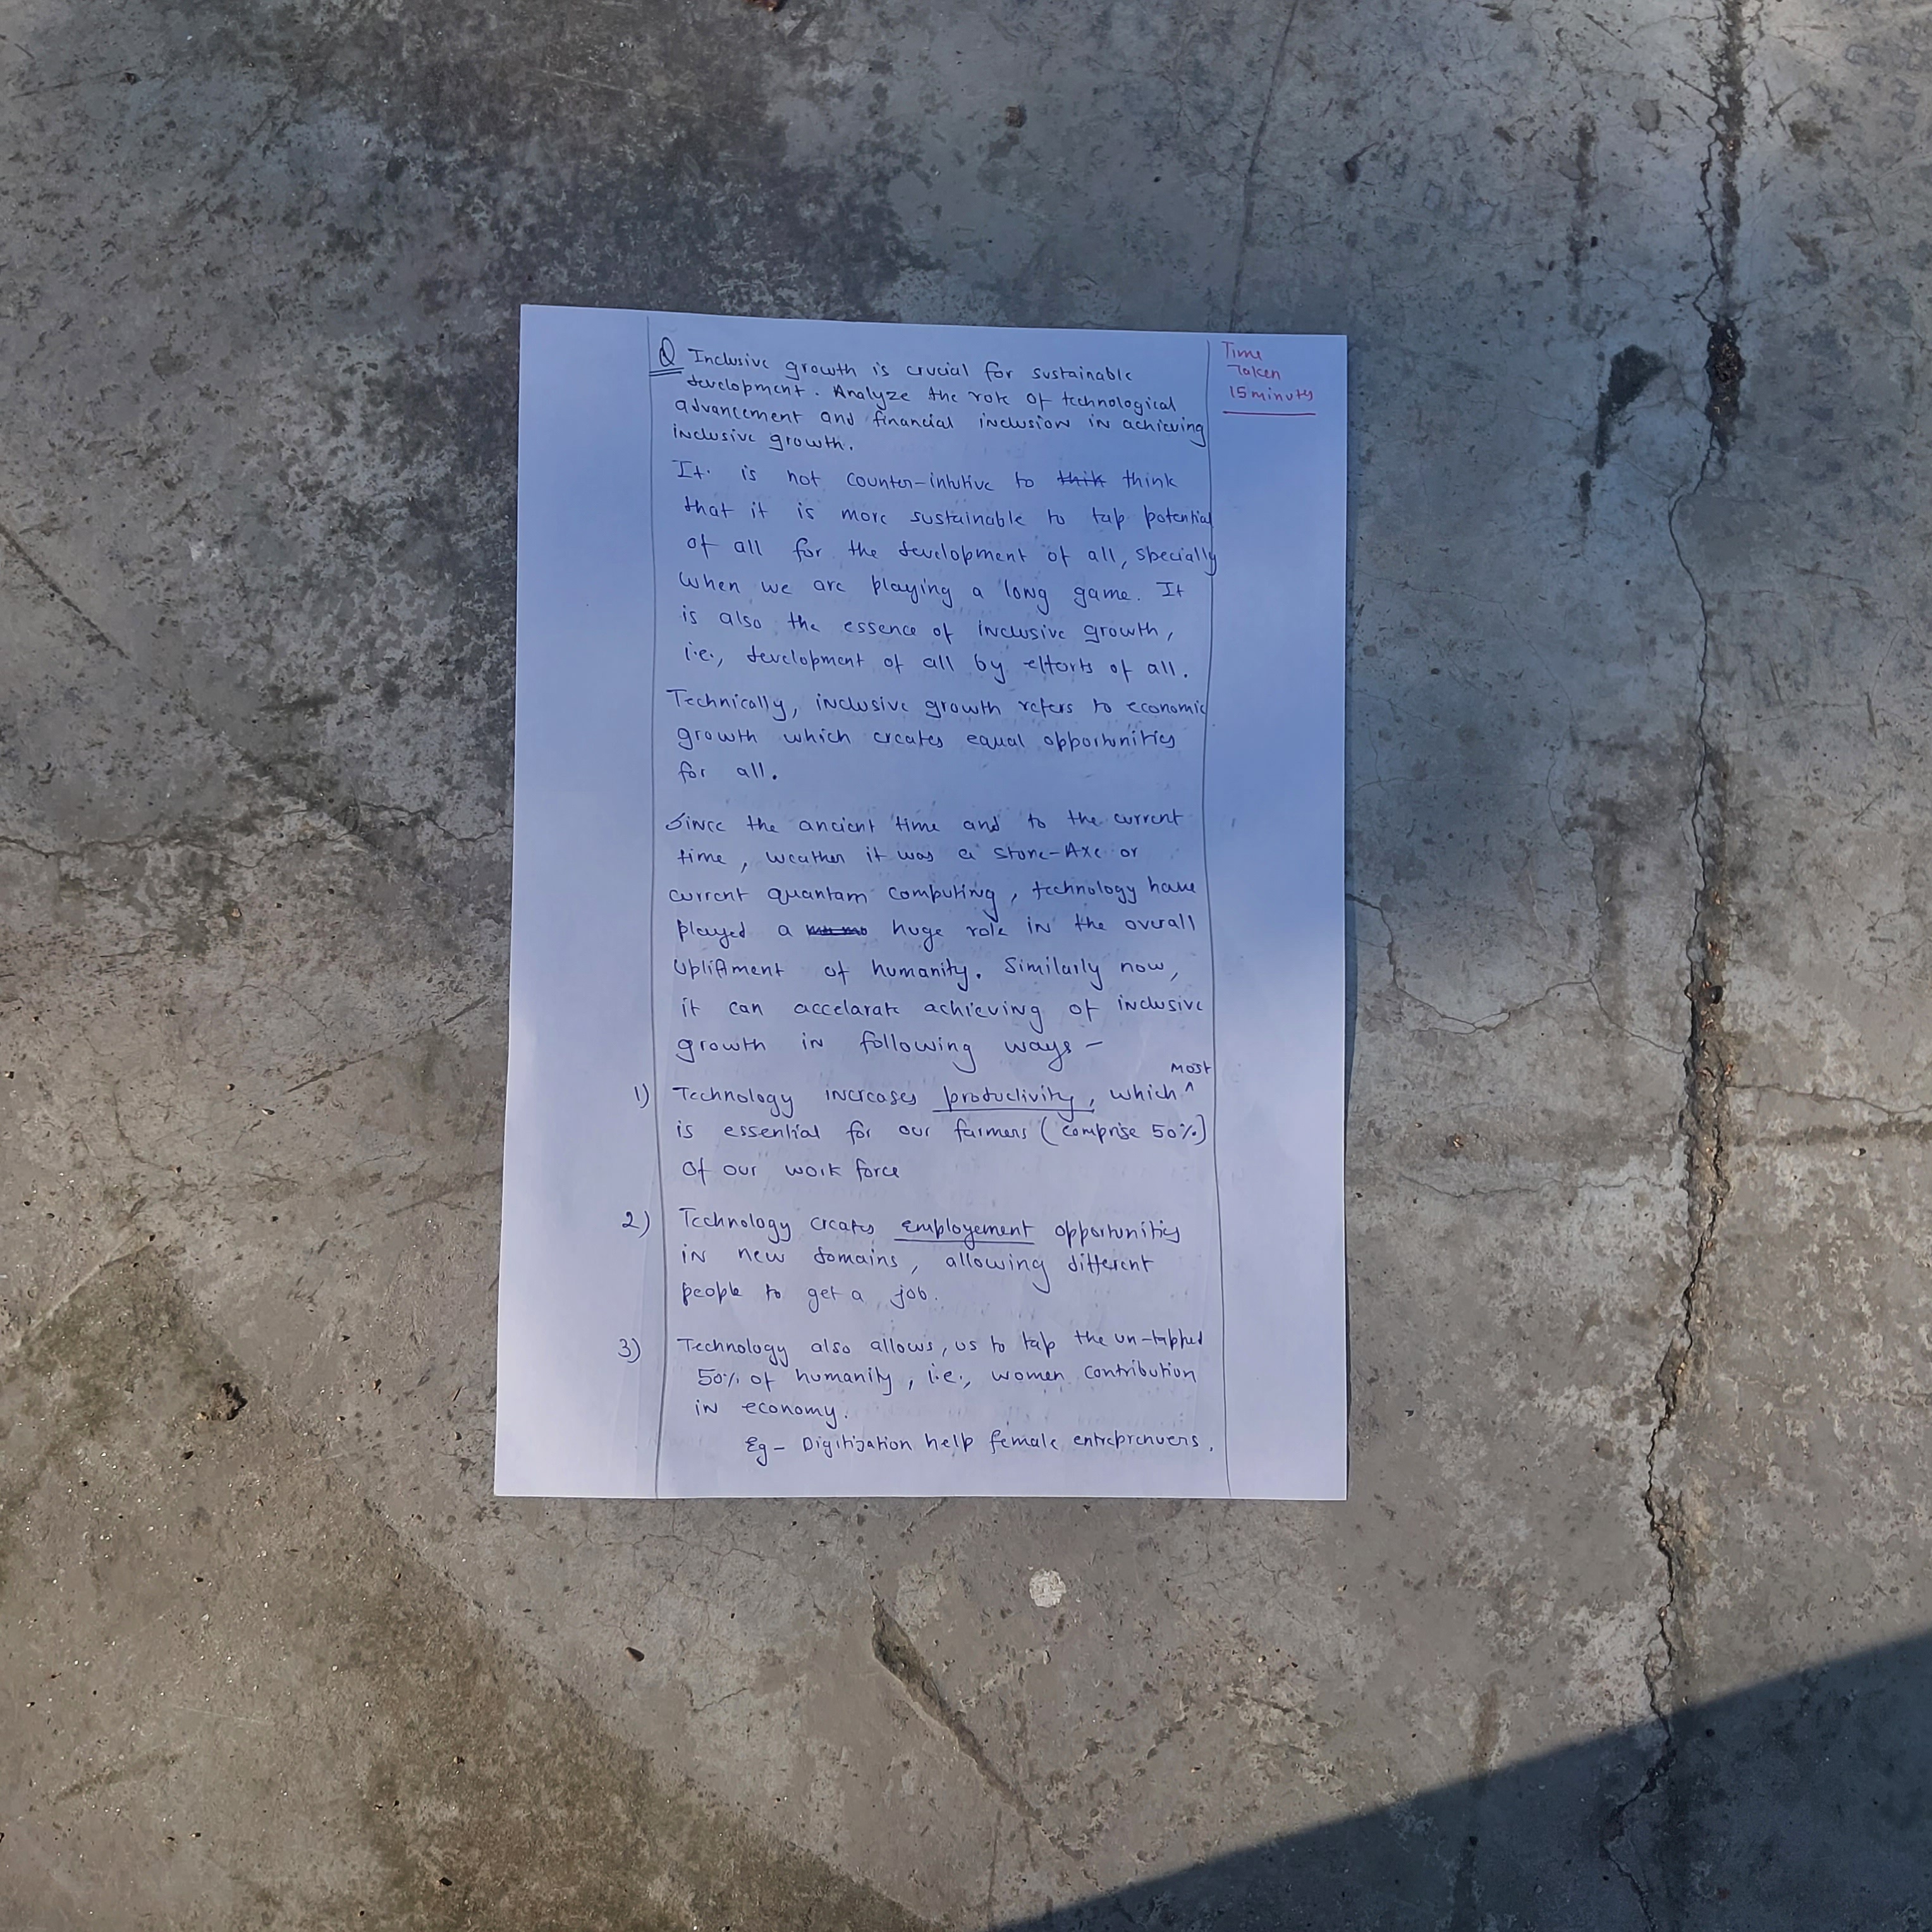 Q Inclusive growth is crucial for sustainable
development. Analyze the role of technological
advancement and financial inclusion in achieving
inclusive growth.
Time
Taken
15 minutes
It is not counter-intutive to thik think
that it is more sustainable to tap potential
of all for the development of all, specially
when we are playing a long game. It
is also the essence of inclusive growth,
i.e., development of all by efforts of all.
Technically, inclusive growth refers to economic
growth which creates equal opportunities
for all.
Since the ancient time and to the current
time, weather it was a stone-Axe or
current quantam computing, technology have
played a huge role in the overall
upliftment of humanity. Similarly now,
it can accelarate achieving of inclusive
growth in following ways -
1) Technology increases productivity, which most
is essential for our farmers (comprise 50%)
of our work force
2) Technology creates employement opportunities
in new domains, allowing different
people to get a job.
3) Technology also allows, us to tap the un-tapped
50% of humanity, i.e., women contribution
in economy.
Eg - Digitization help female entreprenuers.